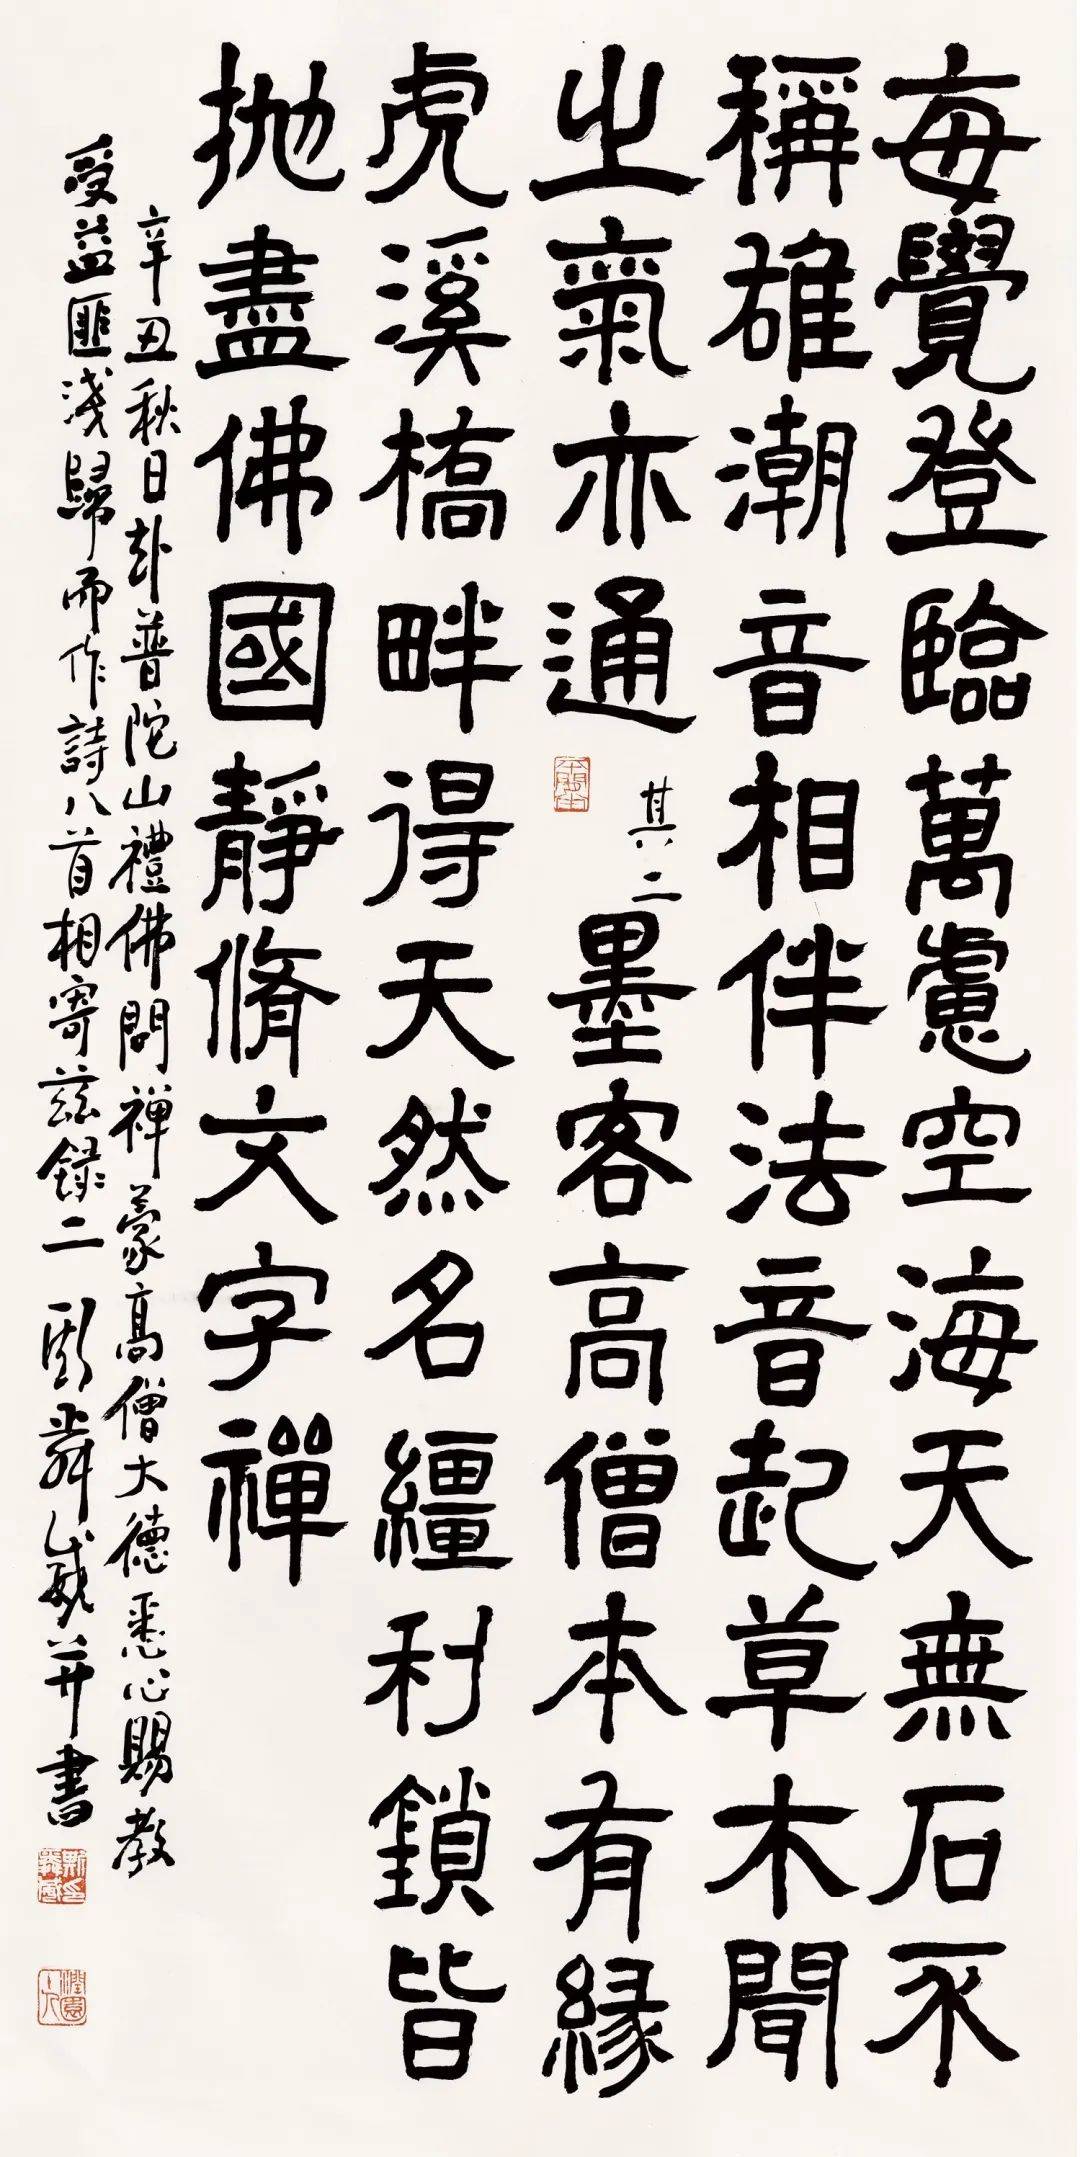 每覺登臨萬慮空海天無石不
稱雄潮音相伴法音起草木聞
之氣亦通 其二 墨客高僧本有緣
虎溪橋畔得天然名繮利鎖皆
抛盡佛國靜脩文字禪
辛丑秋日赴普陀山禮佛問禪蒙高僧大德悉心賜教
受益匪淺歸而作詩八首相寄茲録二 斯舜威并書